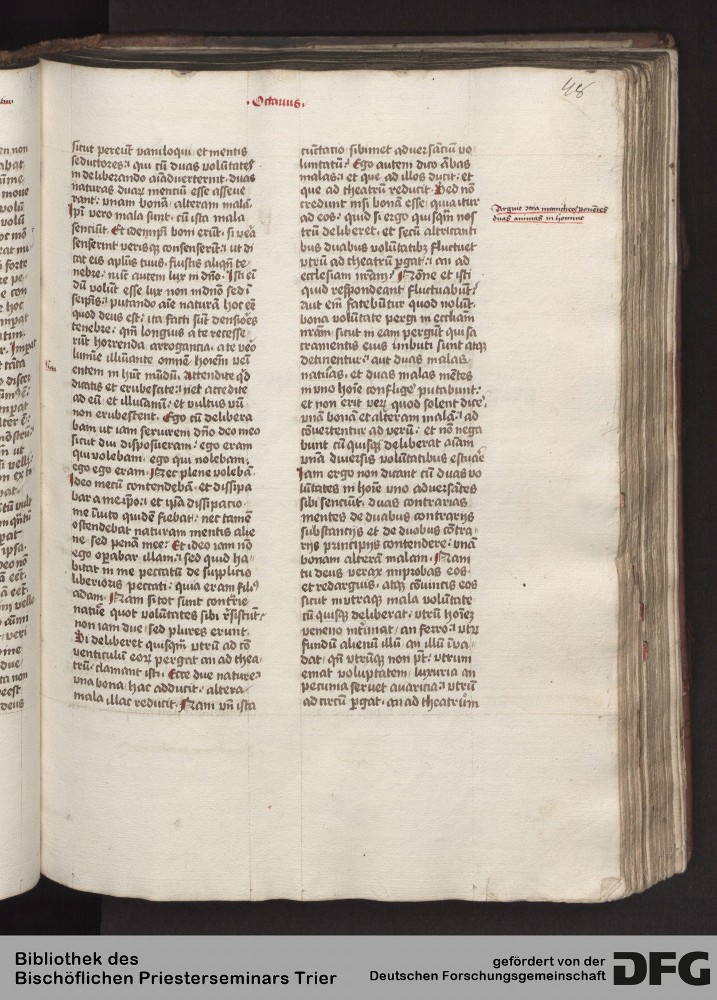 · Octauus ·
48
sicut pereūt vaniloqui et mentis
seductores: qui cū duas volūtates
in deliberando aīaduerterint duas
naturas duaꝝ mentiū esse asseue
rant: vnam bonā alteram malā.
Ipī vero mala sunt cū ista mala
sentiūt. Et idem ipī boni erūt si vera
senserint verisqꝫ consenserīt: ut di
cat eis aplūs tuus. fuistis aliqn̄ te
nebre: nūc autem lux in dn̄o. Isti eī
dū volūt esse lux non in dn̄o sed ī
seip̄is: putando aīe naturā hoc eē
quod deus est: ita facti sūt densiores
tenebre: qm̄ longius a te recesse
rūt horrenda arrogancia. a te vero
lumīe illuīante omnē hoīem veī
entem in hūc mūdū. Attendite qd
dicatis et erubescite: et accedite
ad eū et illuīamī: et vultus vrī
non erubescent. Ego cū delibera
bam ut iam seruirem dn̄o deo meo
sicut diu disposueram: ego eram
qui volebam ego qui nolebam:
ego ego eram. Nec plene volebā
Ideo mecū contendebā et dissipa
bar a me ip̄o: et ip̄a dissipacio
me īuito quidē fiebat: nec tamē
ostendebat naturam mentis alie
ne sed penā mee. Et ideo iam nō
ego oꝑabar illam: sed quod ha
bitat in me peccatū de supplicio
liberioris peccati: quia eram filiꝯ
adam. Nam si tot sunt contrie
natūe quot volūtates sibi rīsistūt:
non iam due sed plures erunt.
Si deliberet quisqm̄ vtrū ad cō
venticulū eoꝝ pergat an ad thea
trū: clamant isti. Ecce due nature:
vna bona hac adducit: altera
mala illac reducit. Nam vn̄ ista
cūctatio sibimet aduersāciū vo
luntatū? Ego autem dico ābas
malas: et que ad illos ducit: et
que ad theatrū reducit. Sed nō
credunt nisi bonā esse qua itur
ad eos: quid si ergo quisqm̄ nos
trū deliberet. et secū altercanti
bus duabus volūtatibꝫ fluctuet
vtrū ad theatrū ꝑgat: an ad
ecclesiam nrām? Nōne et isti
quid respondeant fluctuabūt?
aut eīn fatebūtur quod nolūt.
bona volūtate pergi in eccliam
nrām. sicut in eam pergūt qui sa
cramentis eius imbuti sunt atqꝫ
detinentur: aut duas malas
naturas. et duas malas mētes
in vno hoīe confligere putabunt:
et non erit verū quod solent dicere.
vnā bonā et alteram malā: aut
cōuertentur ad verū: et nō nega
bunt cū quisqꝫ deliberat aīam
vnā diuersis volūtatibus estuare
Iam ergo non dicant cū duas vo
lūtates in hoīe vno aduersātes
sibi senciūt. duas contrarias
mentes de duabus contrarijs
substantijs et de duobus cōtra
rijs principijs contendere: vnā
bonam alterā malam. Nam
tu deus verax improbas eos
et redarguis. atqꝫ cōuincis eos
sicut in vtraqꝫ mala volūtate
cū quisqꝫ deliberat. vtrū hoīez
veneno interimat an ferro: vtrū
fundū alienū illū an illū īua
dat. qn̄ vtrūqꝫ non pt̄: vtrum
emat voluptatem luxuria an
pecunia seruet auaricia: vtrū
ad circū ꝑgat. an ad theatrum
Arguit cōtra manicheos ponētes
duas animas in homine
Bibliothek des
Bischöflichen Priesterseminars Trier
gefördert von der
Deutschen Forschungsgemeinschaft
DFG